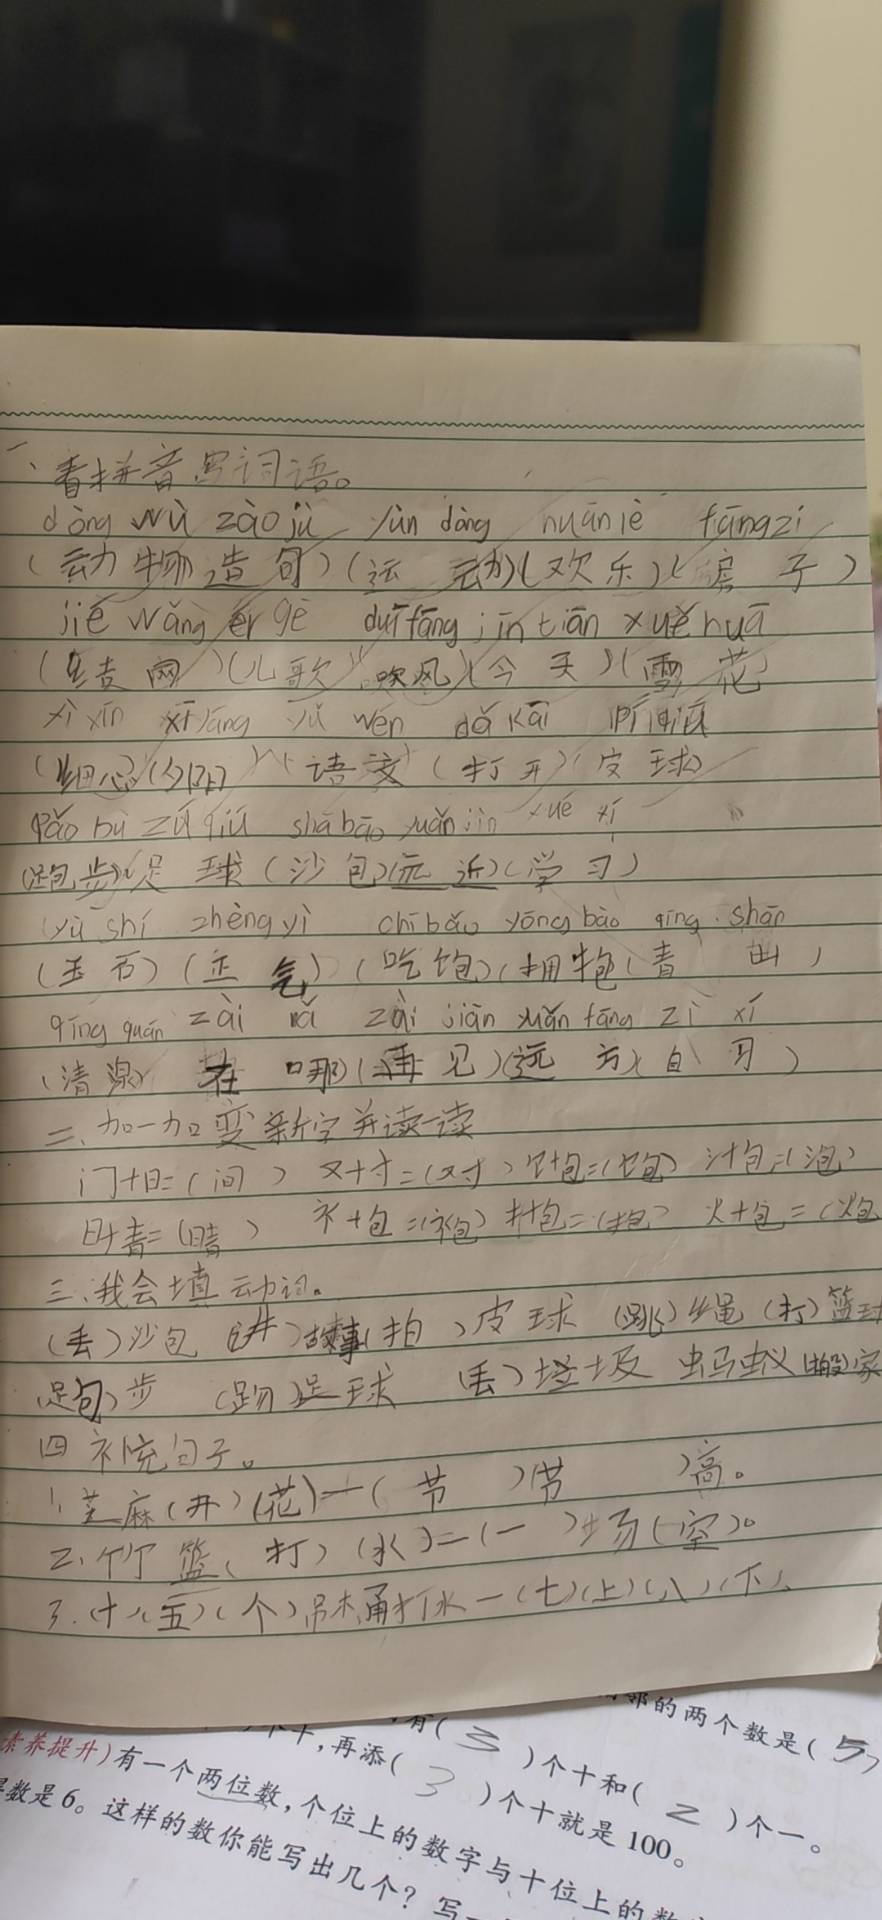 一、看拼音写词语。
dòng wù zào jù yùn dòng huān lè fángzi
(动物造句)(运动)(欢乐)(房子)
jié wǎng ér gē chuī fēng jīn tiān xuě huā
(结网)(儿歌)(吹风)(今天)(雪花)
xì xīn xī yáng yǔ wén dǎ kāi pí qiú
(细心)(夕阳)(语文)(打开)(皮球)
pǎo bù zú qiú shā bāo yuǎn jìn xué xí
(跑步)(足球(沙包)(远近)(学习)
yù shí zhèng qì chī bǎo yōng bào qīng shān
(玉石)(正气)(吃饱)(拥抱(青山)
qīng quán zài nǎ zài jiàn yuǎn fāng zì xí
(清泉)在哪)(再见)(远方)(自习)
二、加一加变新字并读一读
门+日=(间) 又+寸=(对) 饣+包=(饱) 氵+包=(泡)
日+青=(晴) 衤+包=(袍) 扌+包=(抱) 火+包=(炮
三、我会填动词。
(丢)沙包 (讲)故事(拍)皮球 (跳)绳 (打)篮球
(跑)步 (踢)足球 (丢)垃圾 蚂蚁(搬)家
四 补充句子。
1.芝麻(开)(花)一(节)节 )高。
2.竹篮(打)(水)=(一)场(空)。
3.(十)(五)(个)吊桶打水一(七)(上)(八)(下)、
邻的两个数是(5)
个十,再添(3)个十和(2)个一。
有(3)个十就是100。
素养提升)有一个两位数,个位上的数字与十位上的数
数是6。这样的数你能写出几个?写一